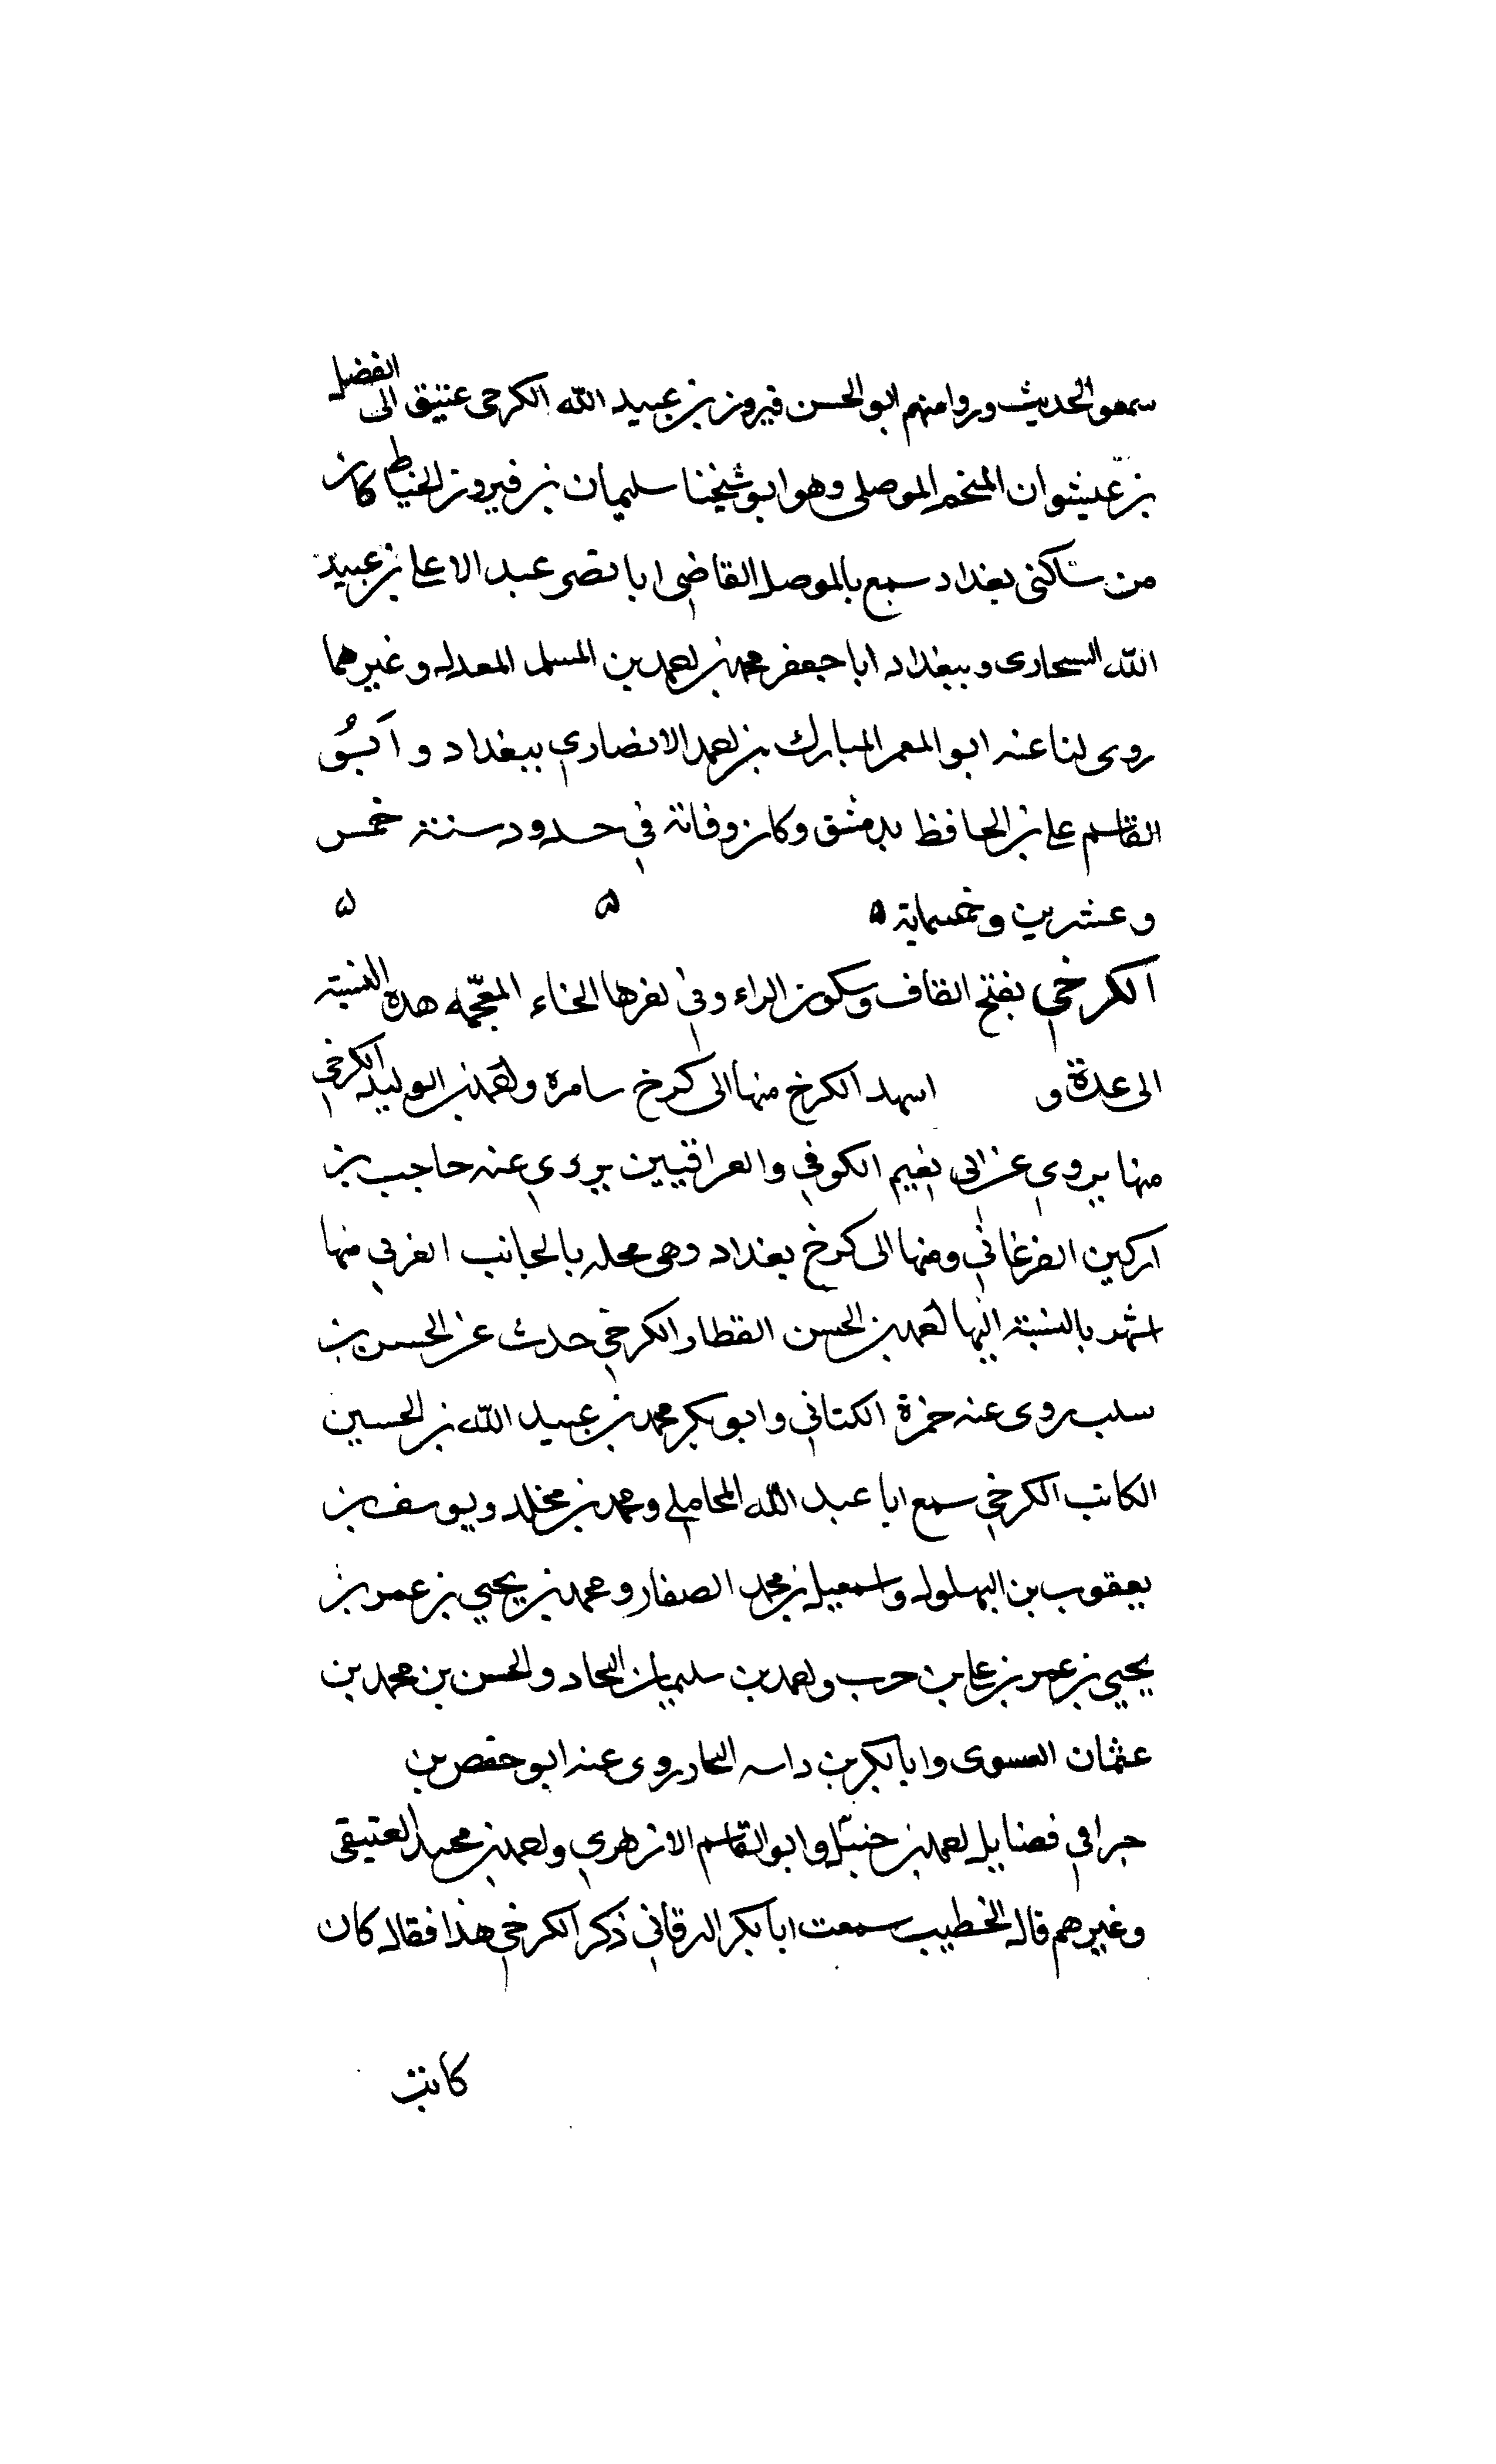 سمعوا الحديث وروا منهم ابو الحسن فيروز بن عبيد الله الكرجى عتيق الى الفضل
بن عيشوان المنخم الموصلى وهو ابو شيخنا سليمان بن فيروز الخياط كان
من ساكنى بغداد سمع بالموصل القاضى ابا نصر عبد الاعلى بن عبيد
الله السحارى وببغداد ابا جعفر محمد بن احمد بن المسلم المعدل وغيرهما
روى لنا عنه ابو المعمر المبارك بن احمد الانصاري ببغداد و
القاسم على بن الحافظ بدمشق وكان وفاته في حدود سنة خمس
وعشرين وخمسماية ه ه ه
الكرخي بفتح الكاف وسكون الراء وفي اخرها الخاء المعجمه هذه النسبة
الى عدة و اسمها الكرخ منها الى كرخ سامره واحمد بن الوليد الكرخي
منها يروي عن ابي نعيم الكوفي والعراقيين يروي عنه حاجب بن
اركين الفرغاني ومنها الى كرخ بغداد وهى محله بالجانب الغربي منها
اشهر بالنسبة اليها احمد بن الحسن القطار الكرخي حدث عن الحسن بن
سلب روى عنه حمزة الكتاني وابو بكر محمد بن عبيد الله بن الحسين
الكاتب الكرخي سمع ابا عبد الله المحاملي ومحمد بن مخلد ويوسف بن
يعقوب بن البهلول واسمعيل بن محمد الصفار ومحمد بن يحيي بن عمر بن
يحيي بن عمر بن على بن حرب واحمد بن سليمان النحاد والحسن بن محمد بن
عثمان الفسوى وابا بكر بن داسه التمار روى عنه ابو حفص بن
جرا في فضايل احمد بن حنبل وابو القاسم الازهري واحمد بن محمد العتيقى
وغيرهم قال الخطيب سمعت ابا بكر البرقاني ذكر الكرخي هذا فقال كان
كانت